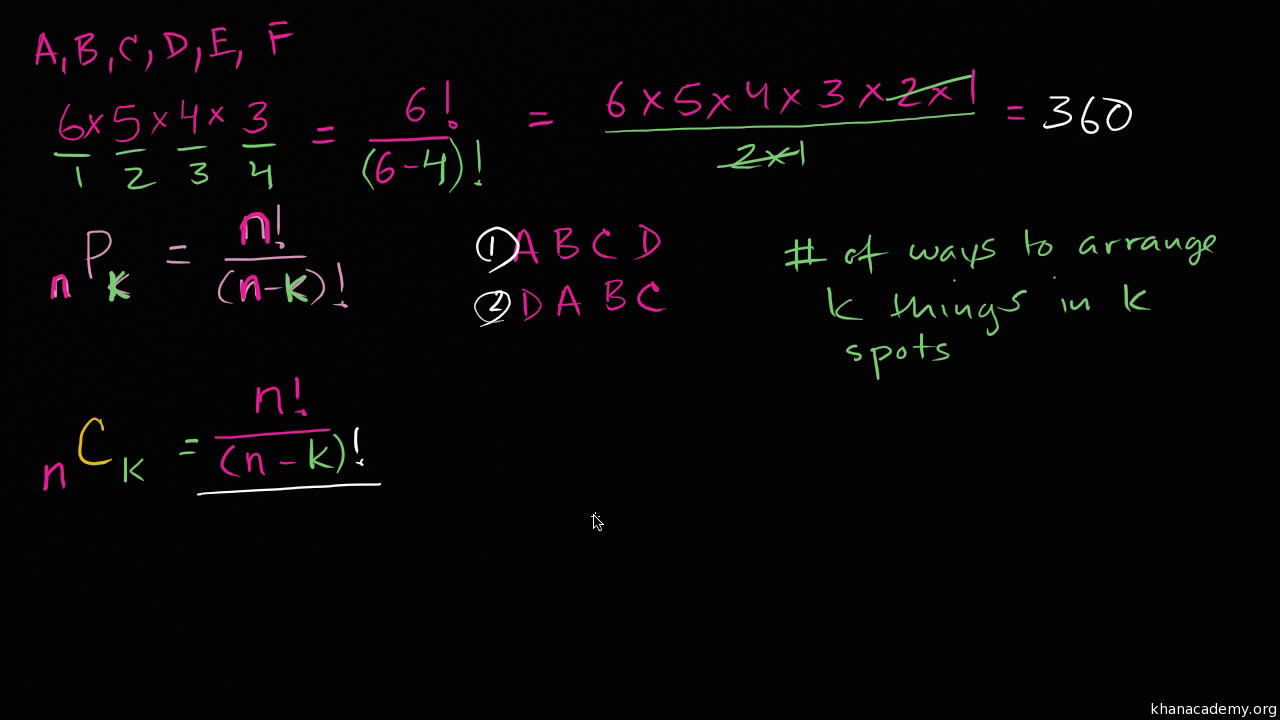 A, B, C, D, E, F
6 × 5 × 4 × 3 = 6! = 6 × 5 × 4 × 3 × 2 × 1 = 360
1 2 3 4 (6-4)! 2×1
nPk = n!
(n-k)!
① A B C D
② D A B C
# of ways to arrange
k things in k
spots
nCk = n!
(n - k)!
khanacademy.org